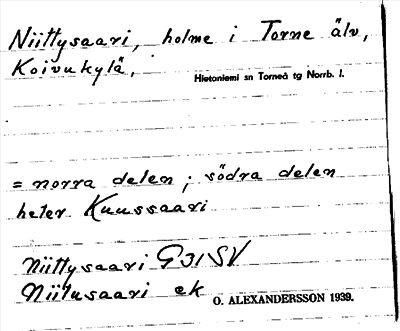 Niittysaari, holme i Torne älv,
Koivukylä,
Hietaniemi sn Torneå tg Norrb. l.
= norra delen; södra delen
heter Kuussaari
Niittysaari G31SV
Niitusaari ek
O. ALEXANDERSSON 1939.